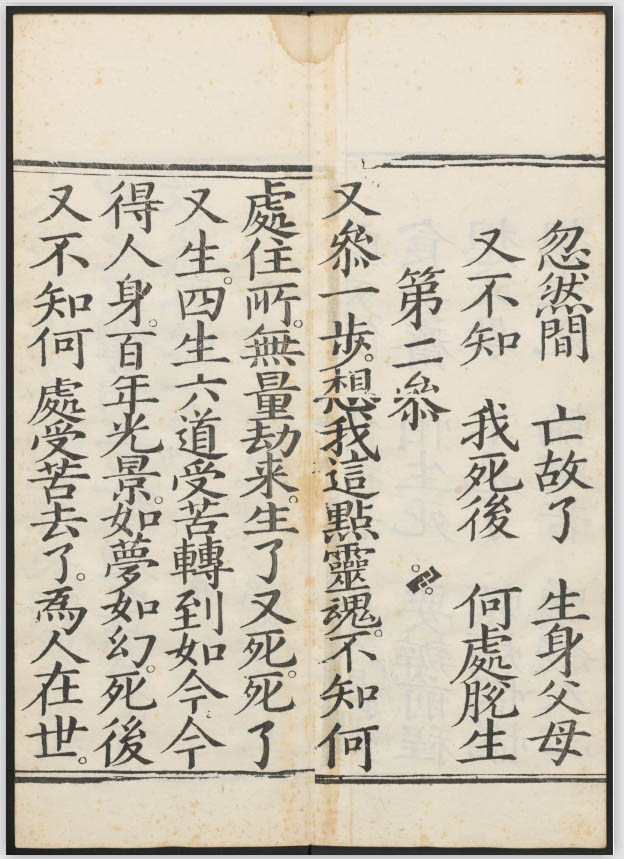 忽然間　亡故了　生身父母
又不知　我死後　何處脫生
第二叅
又叅一歩。想我這點靈魂。不知何
處住所。無量劫来。生了又死。死了
又生。四生六道受苦轉到如今今
得人身。百年光景。如夢如幻。死後
又不知何處受苦去了。爲人在世。